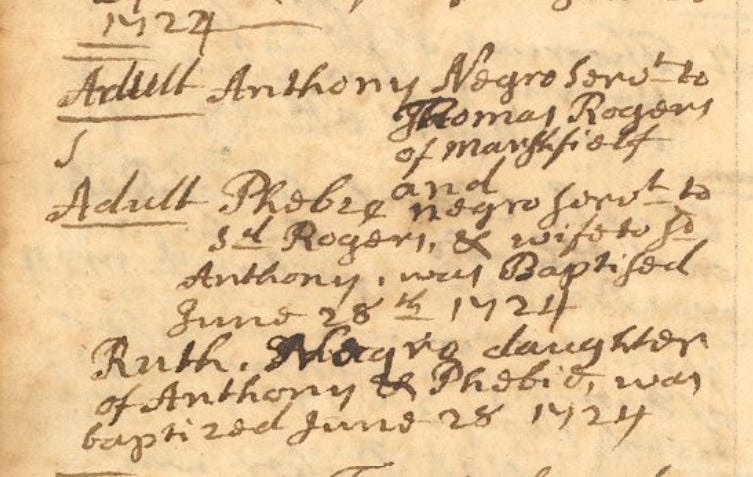 1724
Adult Anthony Negro servt to
Thomas Rogers
of Marshfield
and
Adult Phebie negro servt to
sd Rogers, & wife to sd
Anthony, was Baptised
June 28th 1724
Ruth, Negro daughter
of Anthony & Phebie, was
baptized June 28 1724